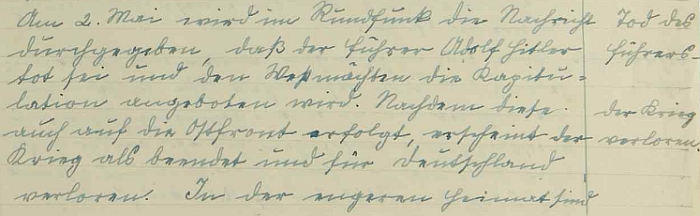 Am 2. Mai wird im Rundfunk die Nachricht
durchgegeben, daß der Führer Adolf Hitler
tot sei und den Westmächten die Kapitu-
lation angeboten wird. Nachdem diese
auch auf die Ostfront erfolgt, erscheint der
Krieg als beendet und für Deutschland
verloren. In der engeren Heimat sind
Tod des
Führers-
der Krieg
verloren.